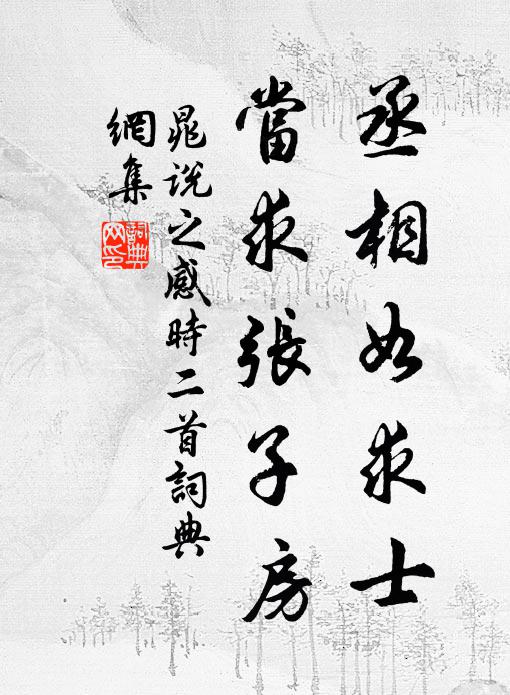 丞相如求士
當求張子房
晁說之感時二首詞典
網集
詞典
网印